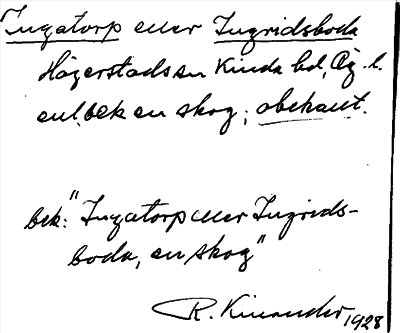 Ingatorp eller Ingridsboda
Hägerstads sn Kinda hd, Ög. l.
enl. bek en skog; obekant.
bek: "Ingatorp eller Ingrids-
boda, en skog"
R. Kinander 1928